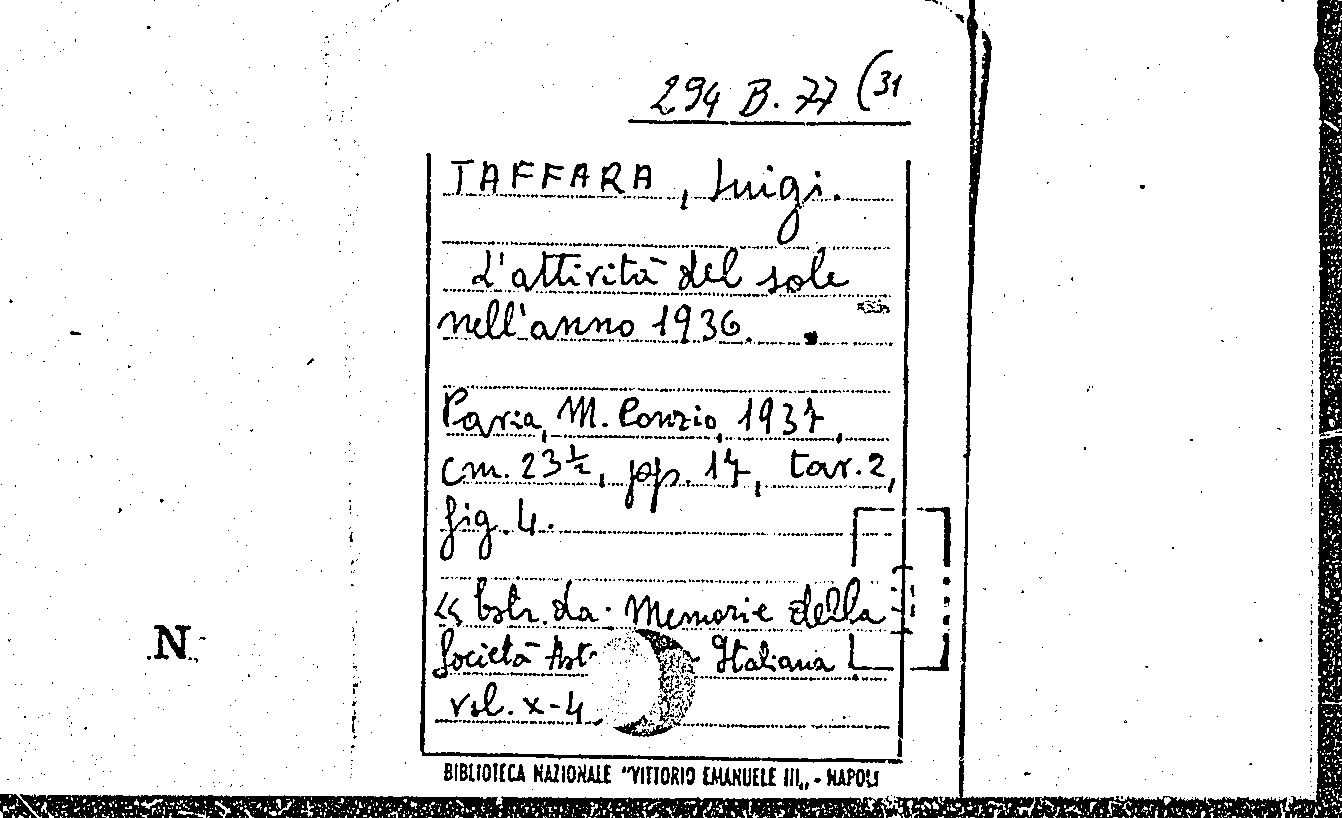 294 B. 77 (31
TAFFARA, Luigi.
L'attività del sole
nell'anno 1936.
Pavia, M. Ponzio, 1937,
cm. 23½, pp. 17, tav. 2,
fig. 4.
« Estr. da: Memorie della
Società Ast Italiana
vol. X-4.
N.
BIBLIOTECA NAZIONALE "VITTORIO EMANUELE III„ - NAPOLI